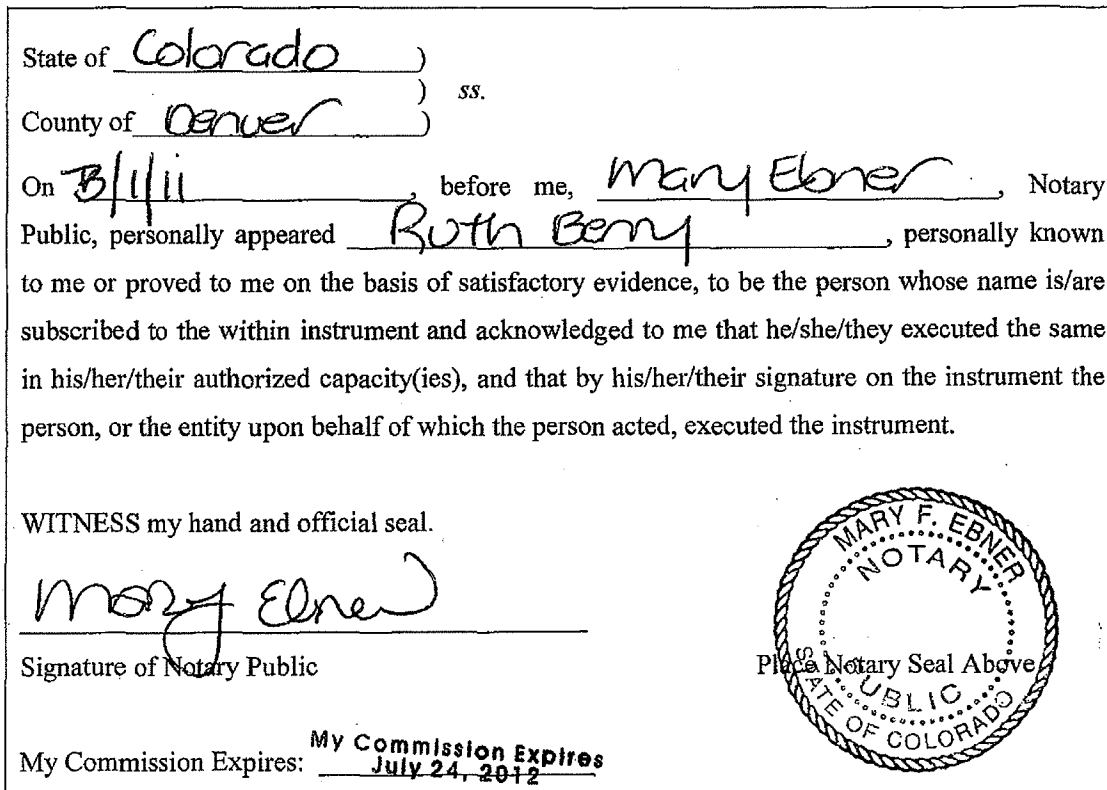 State of Colorado )
) ss.
County of Denver )
On /1/11, before me, Mary Ebner, Notary
Public, personally appeared Ruth Berry, personally known
to me or proved to me on the basis of satisfactory evidence, to be the person whose name is/are
subscribed to the within instrument and acknowledged to me that he/she/they executed the same
in his/her/their authorized capacity(ies), and that by his/her/their signature on the instrument the
person, or the entity upon behalf of which the person acted, executed the instrument.
WITNESS my hand and official seal.
Mary Ebner
Signature of Notary Public
MARY F. EBNER
NOTARY
PUBLIC
STATE OF COLORADO
Place Notary Seal Above
My Commission Expires: My Commission Expires
July 24, 2012